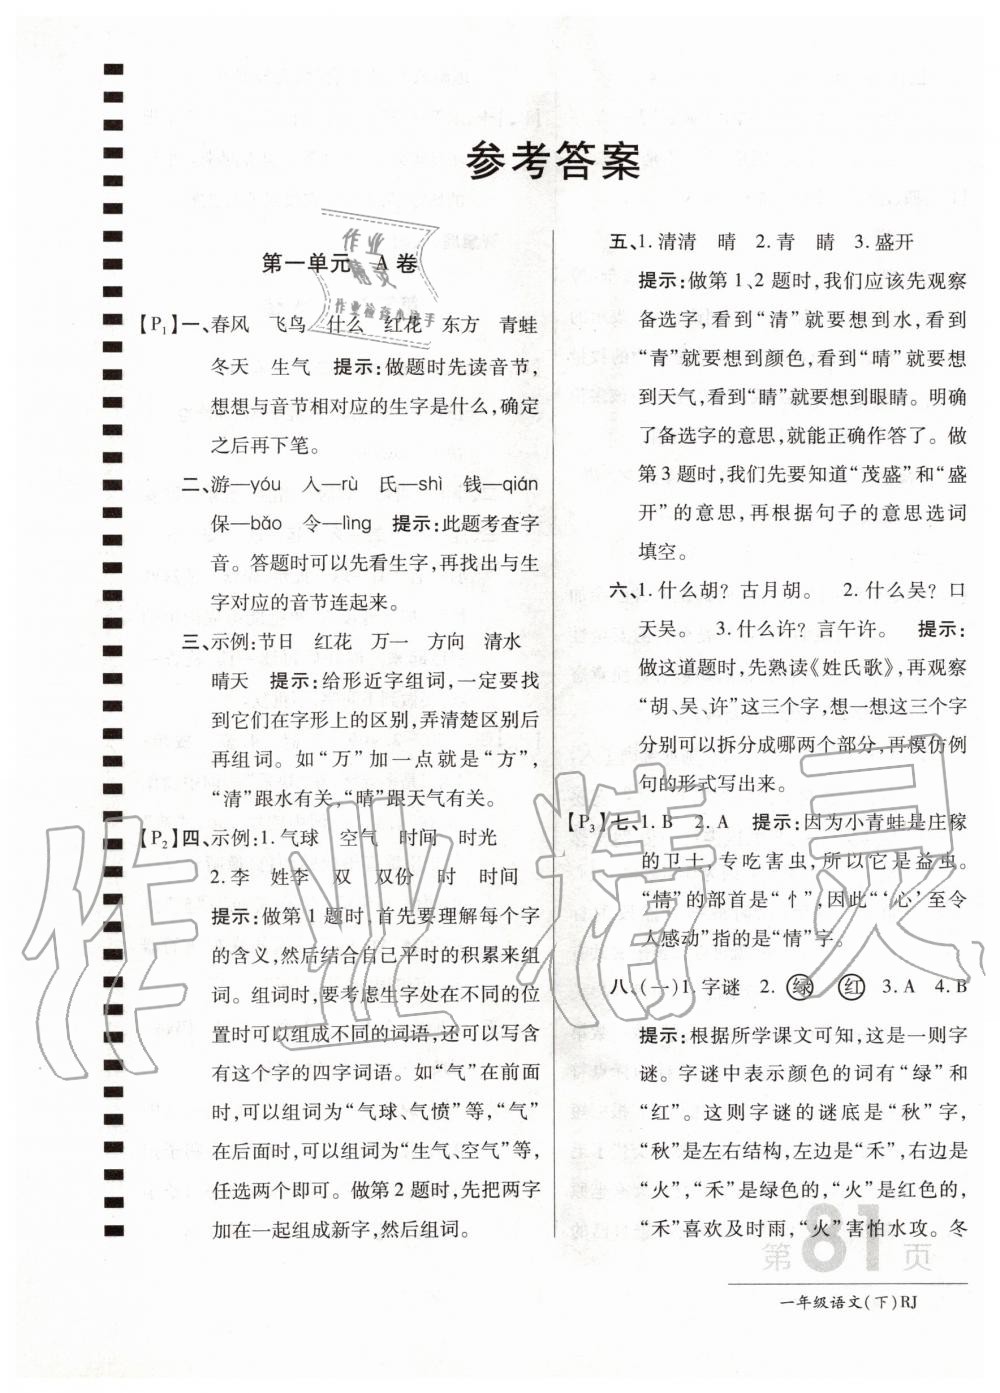 参考答案
第一单元 A卷
【P1】一、春风 飞鸟 什么 红花 东方 青蛙
冬天 生气 提示:做题时先读音节,
想想与音节相对应的生字是什么,确定
之后再下笔。
二、游—yóu 入—rù 氏—shì 钱—qián
保—bǎo 令—lìng 提示:此题考查字
音。答题时可以先看生字,再找出与生
字对应的音节连起来。
三、示例:节日 红花 万一 方向 清水
晴天 提示:给形近字组词,一定要找
到它们在字形上的区别,弄清楚区别后
再组词。如“万”加一点就是“方”,
“清”跟水有关,“晴”跟天气有关。
【P2】四、示例:1.气球 空气 时间 时光
2.李 姓李 双 双份 时 时间
提示:做第1题时,首先要理解每个字
的含义,然后结合自己平时的积累来组
词。组词时,要考虑生字处在不同的位
置时可以组成不同的词语,还可以写含
有这个字的四字词语。如“气”在前面
时,可以组词为“气球、气愤”等,“气”
在后面时,可以组词为“生气、空气”等,
任选两个即可。做第2题时,先把两字
加在一起组成新字,然后组词。
五、1.清清 晴 2.青 睛 3.盛开
提示:做第1、2题时,我们应该先观察
备选字,看到“清”就要想到水,看到
“青”就要想到颜色,看到“晴”就要想
到天气,看到“睛”就要想到眼睛。明确
了备选字的意思,就能正确作答了。做
第3题时,我们先要知道“茂盛”和“盛
开”的意思,再根据句子的意思选词
填空。
六、1.什么胡?古月胡。 2.什么吴?口
天吴。 3.什么许?言午许。 提示:
做这道题时,先熟读《姓氏歌》,再观察
“胡、吴、许”这三个字,想一想这三个字
分别可以拆分成哪两个部分,再模仿例
句的形式写出来。
【P3】七、1.B 2.A 提示:因为小青蛙是庄稼
的卫士,专吃害虫,所以它是益虫。
“情”的部首是“忄”,因此“‘心’至令
人感动”指的是“情”字。
八、(一)1.字谜 2.绿 红 3.A 4.B
提示:根据所学课文可知,这是一则字
谜。字谜中表示颜色的词有“绿”和
“红”。这则字谜的谜底是“秋”字,
“秋”是左右结构,左边是“禾”,右边是
“火”,“禾”是绿色的,“火”是红色的,
“禾”喜欢及时雨,“火”害怕水攻。冬
第81页
一年级语文(下)RJ
作业
精灵
作业检查小助手
作业精灵